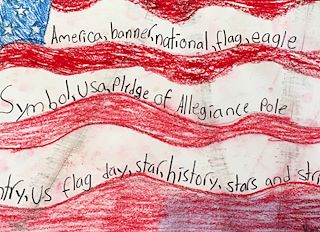 America, banner, national, flag, eagle
Symbol, USA, Pldege of Allegiance Pole
ntry, US flag day, star, history, stars and stri